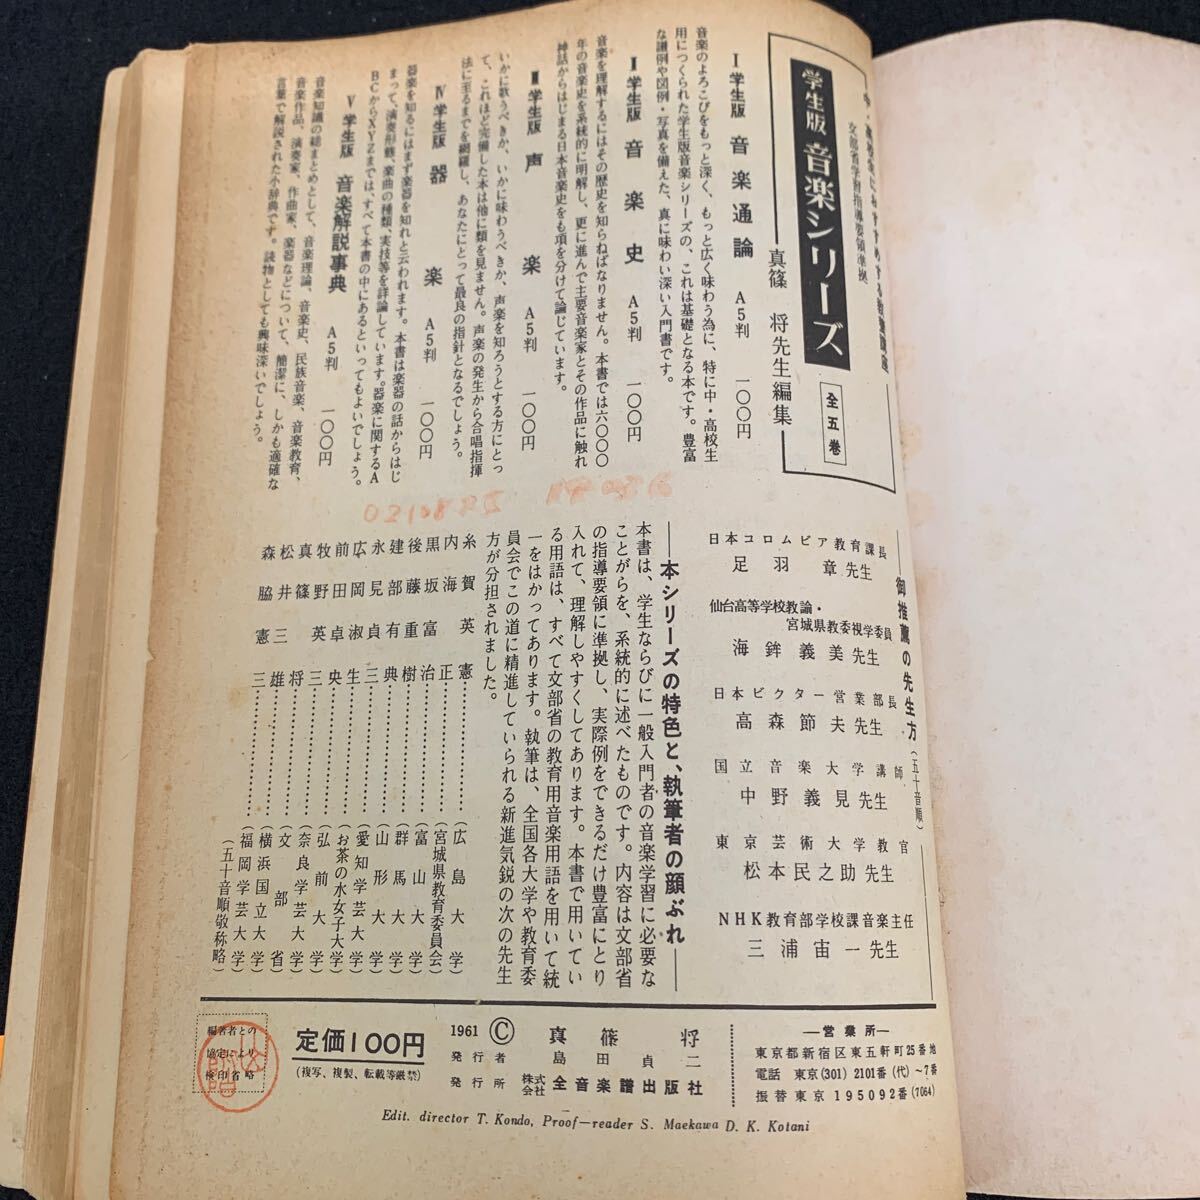 文部省学習指導要領準拠
学生版 音楽シリーズ
全五巻
真篠 将先生編集
Ⅰ 学生版 音楽通論 A5判 一〇〇円
音楽のよろこびをもっと深く、もっと広く味わう為に、特に中・高校生
用につくられた学生版音楽シリーズの、これは基礎となる本です。豊富
な譜例や図例・写真を備えた、真に味わい深い入門書です。
Ⅱ 学生版 音楽史 A5判 一〇〇円
音楽を理解するにはその歴史を知らねばなりません。本書では六〇〇〇
年の音楽史を系統的に明解し、更に進んで主要音楽家とその作品に触れ
神話からはじまる日本音楽史をも項を分けて論じています。
Ⅲ 学生版 声楽 A5判 一〇〇円
いかに歌うべきか、いかに味わうべきか、声楽を知ろうとする方にとっ
て、これほど完備した本は他に類を見ません。声楽の発生から合唱指揮
法に至るまでを網羅し、あなたにとって最良の指針となるでしょう。
Ⅳ 学生版 器楽 A5判 一〇〇円
器楽を知るにはまず楽器を知れと云われます。本書は楽器の話からはじ
まって、演奏形態、楽曲の種類、実技等を詳論しています。器楽に関するA
BCからXYZまでは、すべて本書の中にあるといってもよいでしょう。
Ⅴ 学生版 音楽解説事典 A5判 一〇〇円
音楽知識の総まとめとして、音楽理論、音楽史、民族音楽、音楽教育、
音楽作品、演奏家、作曲家、楽器などについて、簡潔に、しかも適確な
言葉で解説された小辞典です。読物としても興味深いでしょう。
御推薦の先生方(五十音順)
日本コロムビア教育課長
足羽章先生
仙台高等学校教諭・
宮城県教委視学委員
海鉾義美先生
日本ビクター営業部長
高森節夫先生
国立音楽大学講師
中野義見先生
東京芸術大学教官
松本民之助先生
NHK教育部学校課音楽主任
三浦宙一先生
―本シリーズの特色と、執筆者の顔ぶれ―
本書は、学生ならびに一般入門者の音楽学習に必要な
ことがらを、系統的に述べたものです。内容は文部省
の指導要領に準拠し、実際例をできるだけ豊富にとり
入れて、理解しやすくしてあります。本書で用いてい
る用語は、すべて文部省の教育用音楽用語を用いて統
一をはかってあります。執筆は、全国各大学や教育委
員会でこの道に精進していられる新進気鋭の次の先生
方が分担されました。
糸賀英憲……………(広島大学)
内海正……………(宮城県教育委員会)
黒坂富治……………(富山大学)
後藤重樹……………(群馬大学)
建部有典……………(山形大学)
永見貞三……………(愛知学芸大学)
広岡淑生……………(お茶の水女子大学)
前田卓央……………(弘前大学)
牧野英三……………(奈良学芸大学)
真篠将……………(文部省)
松井三雄……………(横浜国立大学)
森脇憲三……………(福岡学芸大学)
(五十音順敬称略)
編著者との
協定により
検印省略
定価100円
(複写、複製、転載等厳禁)
1961 Ⓒ 真篠 将
発行者 島田貞二
発行所 株式会社 全音楽譜出版社
―営業所―
東京都新宿区東五軒町25番地
電話 東京(301) 2101番(代)〜7番
振替東京 195092番(7064)
Edit. director T. Kondo, Proof—reader S. Maekawa D. K. Kotani